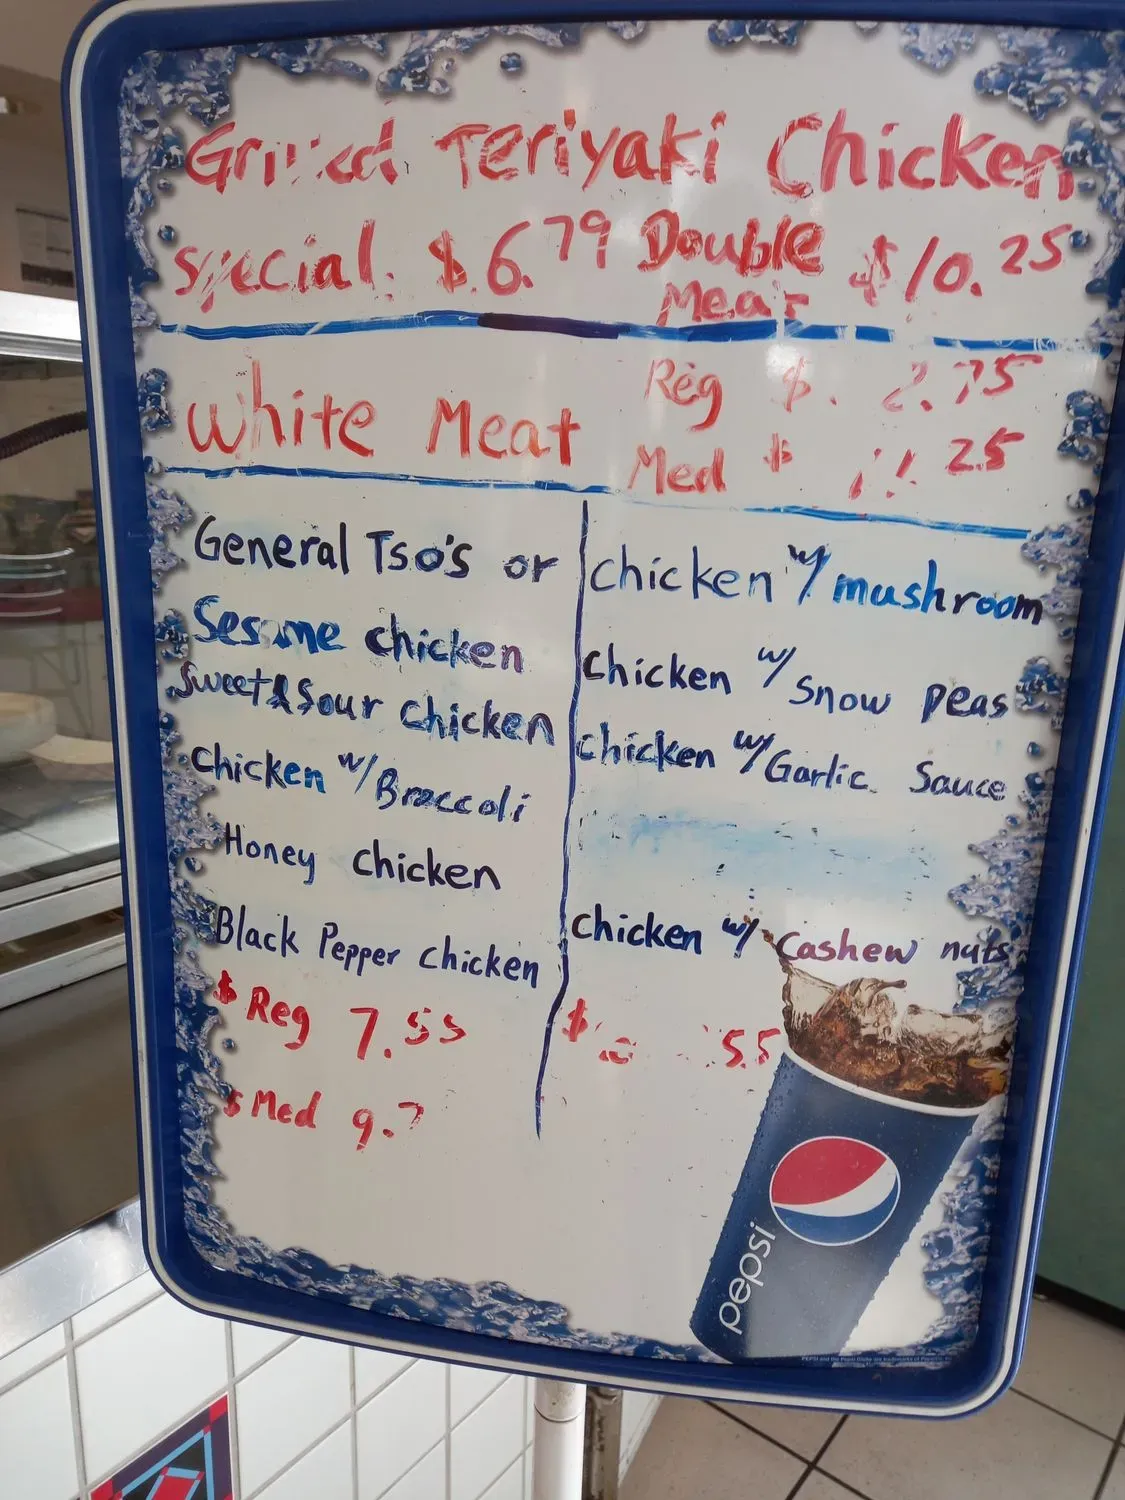 Grilled Teriyaki Chicken
special. $6.79 Double Meat $10.25
White Meat
Reg $ 2.75
Med $ 25
General Tso's or
Sesame chicken
Sweet & Sour chicken
chicken w/ Broccoli
Honey chicken
Black Pepper chicken
$ Reg 7.55
$ Med 9.
chicken w/ mushroom
chicken w/ Snow peas
chicken w/ Garlic Sauce
chicken w/ Cashew nuts
$ 55
pepsi